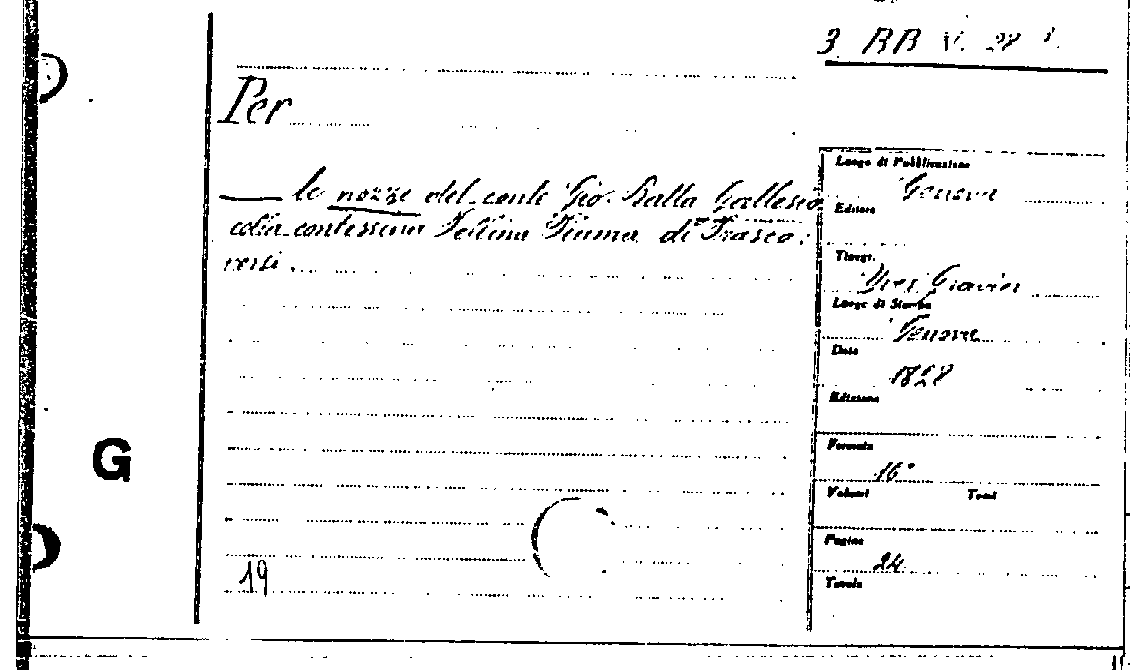 3 BB V. 28
Per
le nozze del conte Gio. Batta Gallesio
colla contessina Fiuma di Frasco:
versi.
19
G
Luogo di Pubblicazione
Genova
Editore
Tipogr.
Yves Gravier
Luogo di Stampa
Genova
Data
1828
Edizione
Formato
16°
Volumi Tomi
Pagine
24
Tavole